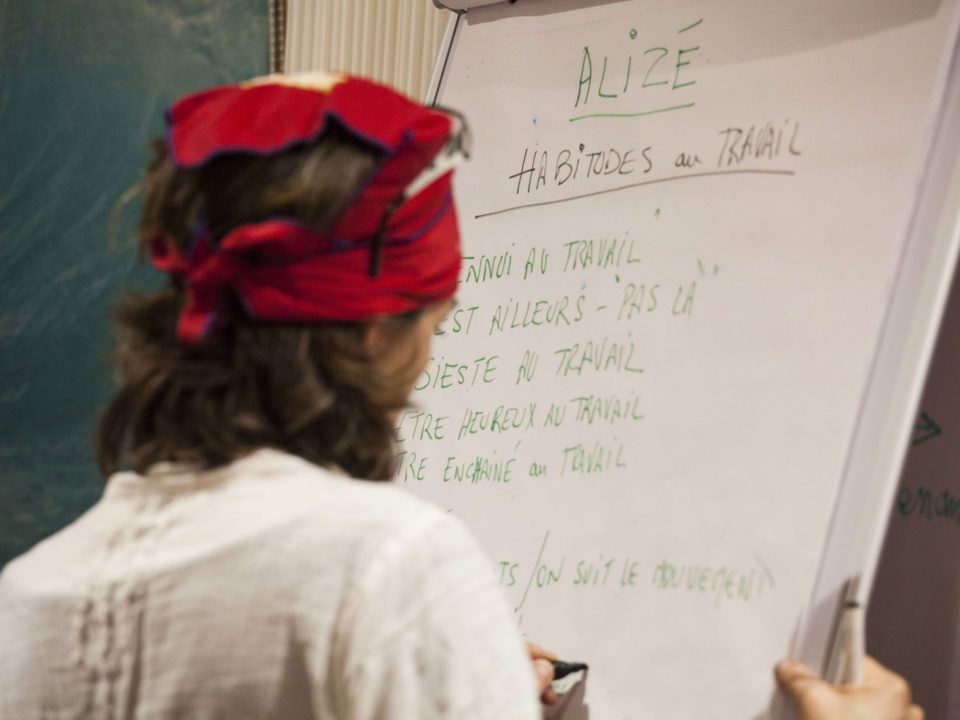 ALIZÉ
HABITUDES au TRAVAIL
ENNUI AU TRAVAIL
EST AILLEURS - "PAS LÀ"
SIESTE AU TRAVAIL
ETRE HEUREUX AU TRAVAIL
TRE ENCHAINÉ au TRAVAIL
TS / ON SUIT LE MOUVEMENT